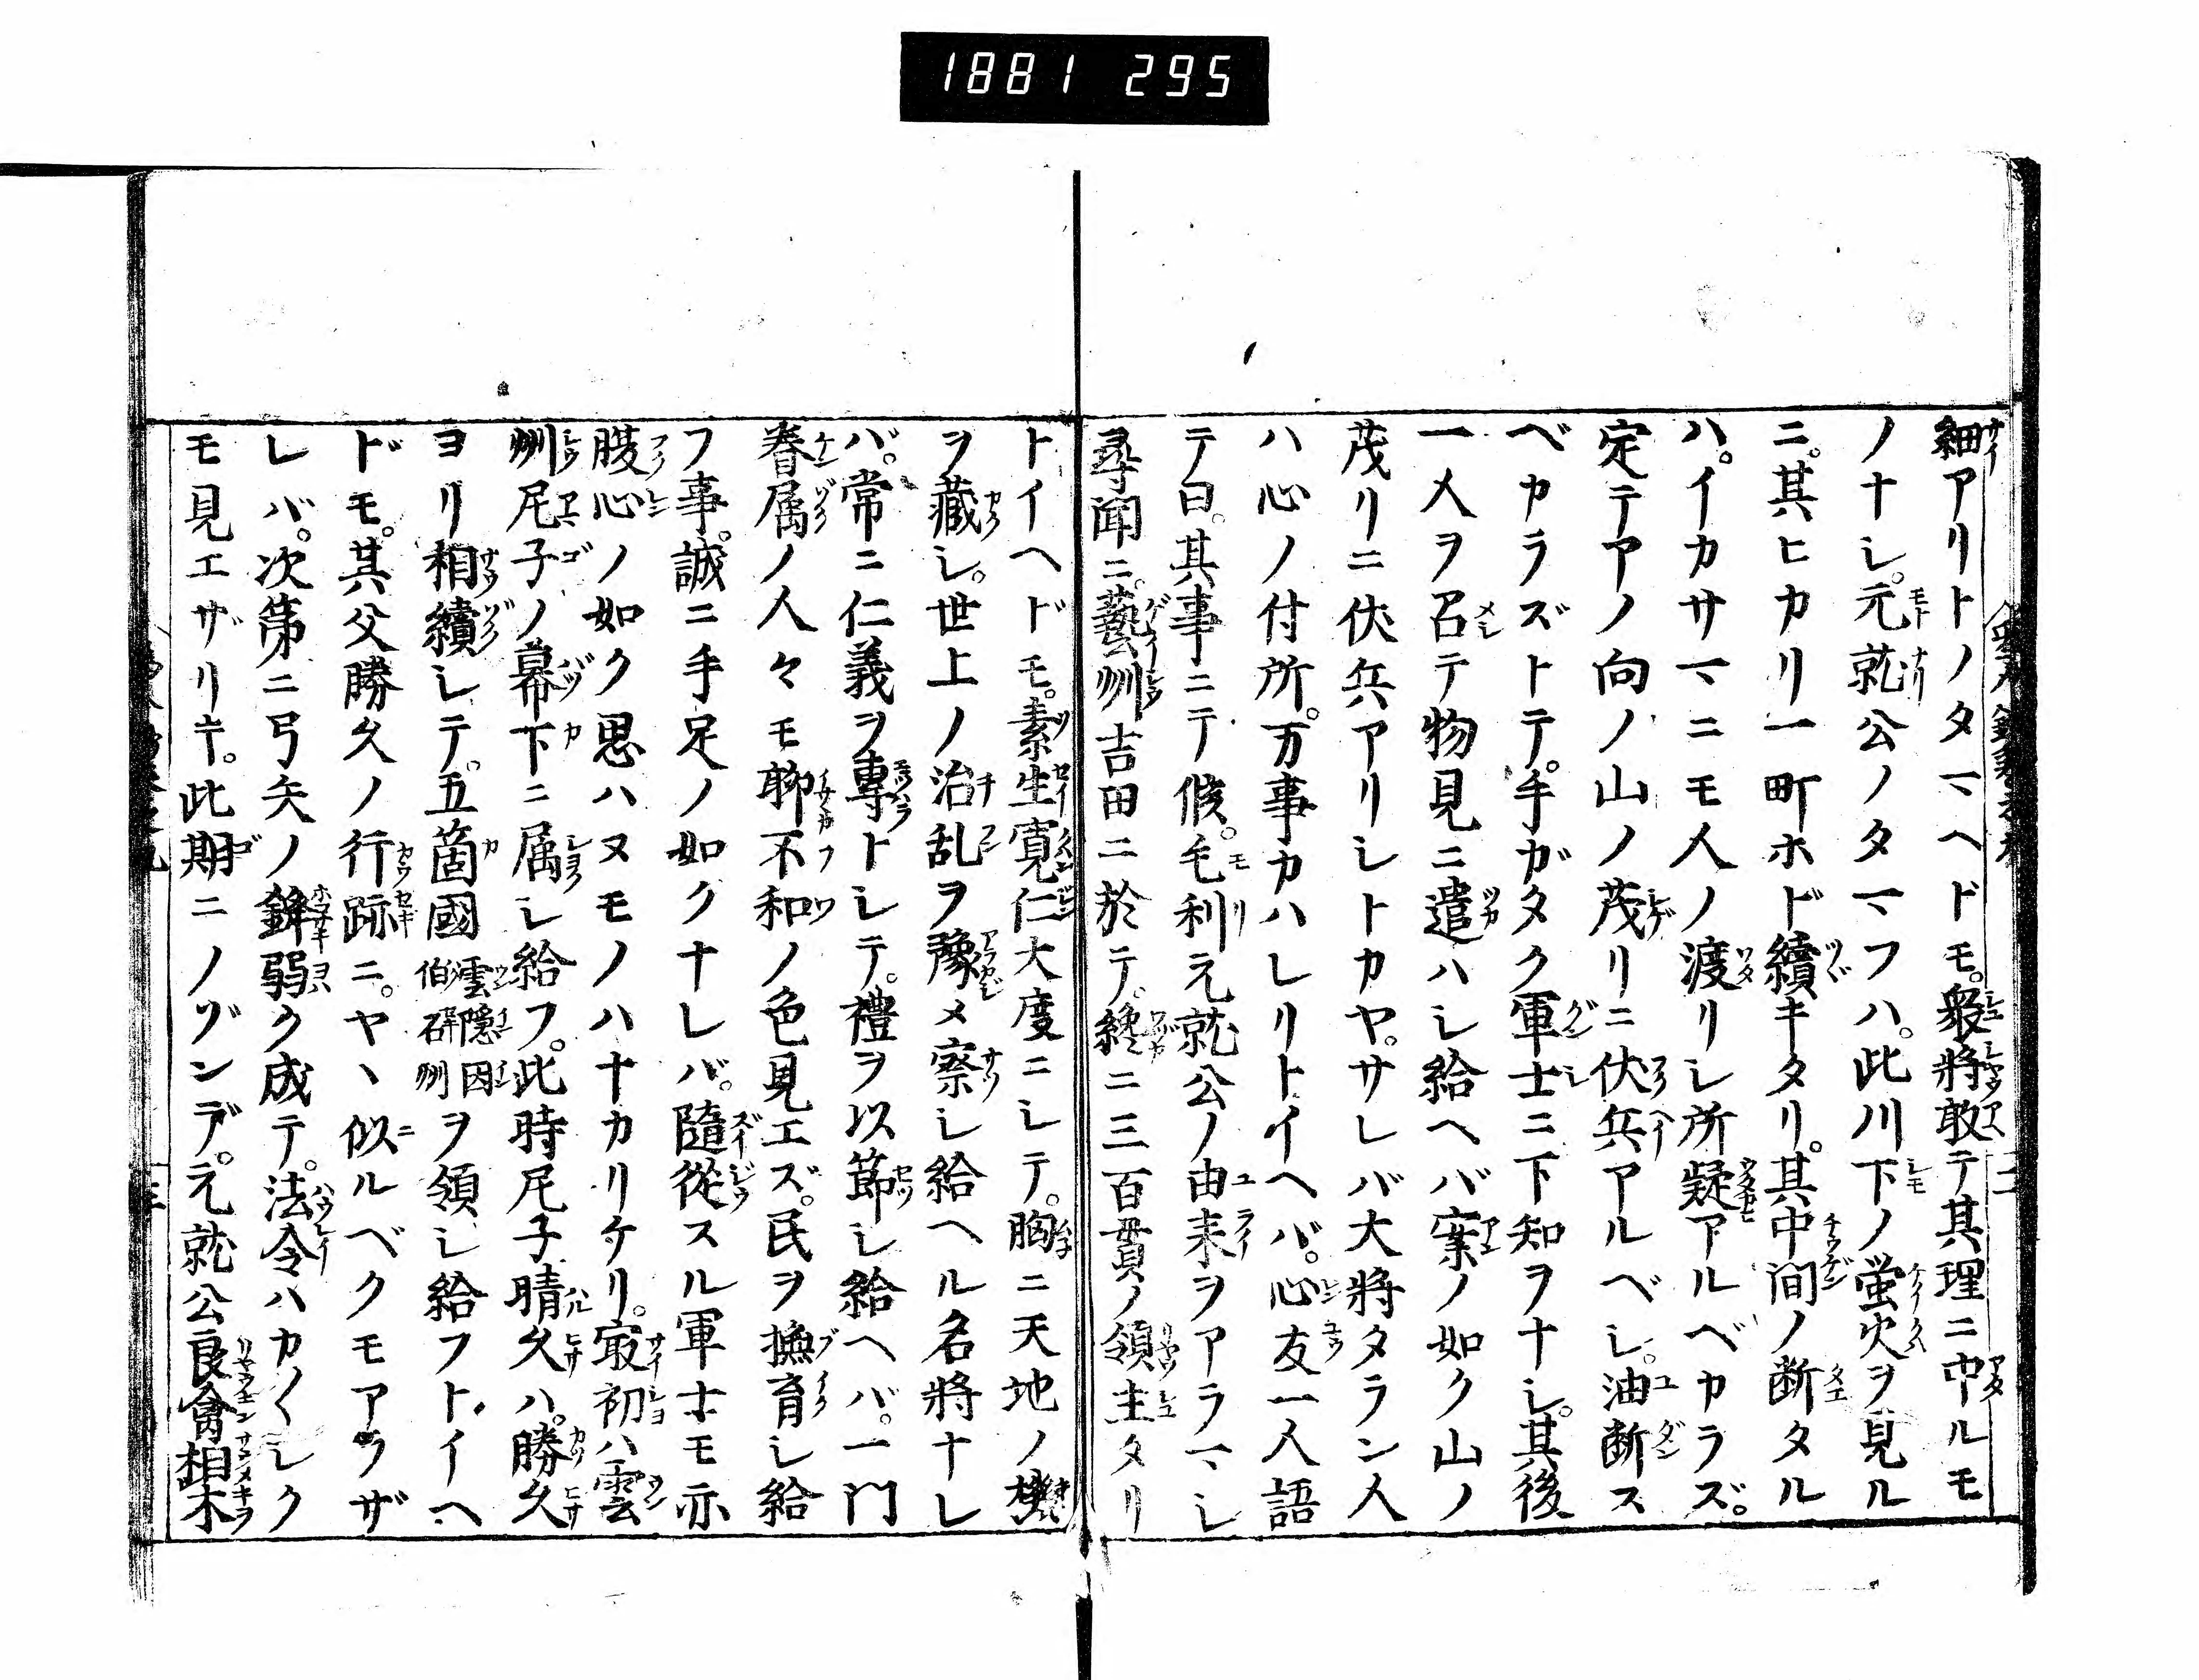 1881 295
細アリトノタマヘドモ。衆將敢テ其理ニ中ルモ
ノナシ。元就公ノタマフハ。此川下ノ蛍火ヲ見ル
ニ。其ヒカリ一町ホド續キタリ。其中間ノ断タル
ハ。イカサマニモ人ノ渡リシ所疑アルベカラズ。
定テアノ向ノ山ノ茂リニ伏兵アルベシ。油断ス
ベカラズトテ。手ガタク軍士ニ下知ヲナシ。其後
一人ヲ召テ物見ニ遣ハシ給ヘバ案ノ如ク山ノ
茂リニ伏兵アリシトカヤ。サレバ大將タラン人
ハ心ノ付所。万事カハレリトイヘバ。心友一人語
テ曰。其事ニテ候。毛利元就公ノ由来ヲアラマシ
尋聞ニ。藝州吉田ニ於テ。纔ニ三百貫ノ領主タリ
トイヘドモ。素生寛仁大度ニシテ。胸ニ天地ノ機
ヲ藏シ。世上ノ治乱ヲ豫メ察シ給ヘル名將ナレ
バ。常ニ仁義ヲ專トシテ。禮ヲ以節シ給ヘバ。一門
眷属ノ人々モ聊不和ノ色見エズ。民ヲ撫育シ給
フ事。誠ニ手足ノ如クナレバ。隨從スル軍士モ亦
腹心ノ如ク思ハヌモノハナカリケリ。㝡初ハ雲
州尼子ノ幕下ニ属シ給フ。此時尼子晴久ハ。勝久
ヨリ相續シテ。五箇國雲隠因伯石州ヲ領シ給フトイヘ
ドモ。其父勝久ノ行跡ニ。ヤヽ似ルベクモアラザ
レバ。次第ニ弓矢ノ鉾弱ク成テ。法令ハカ〲シク
モ見エザリキ。此期ニノゾンデ。元就公良禽相木